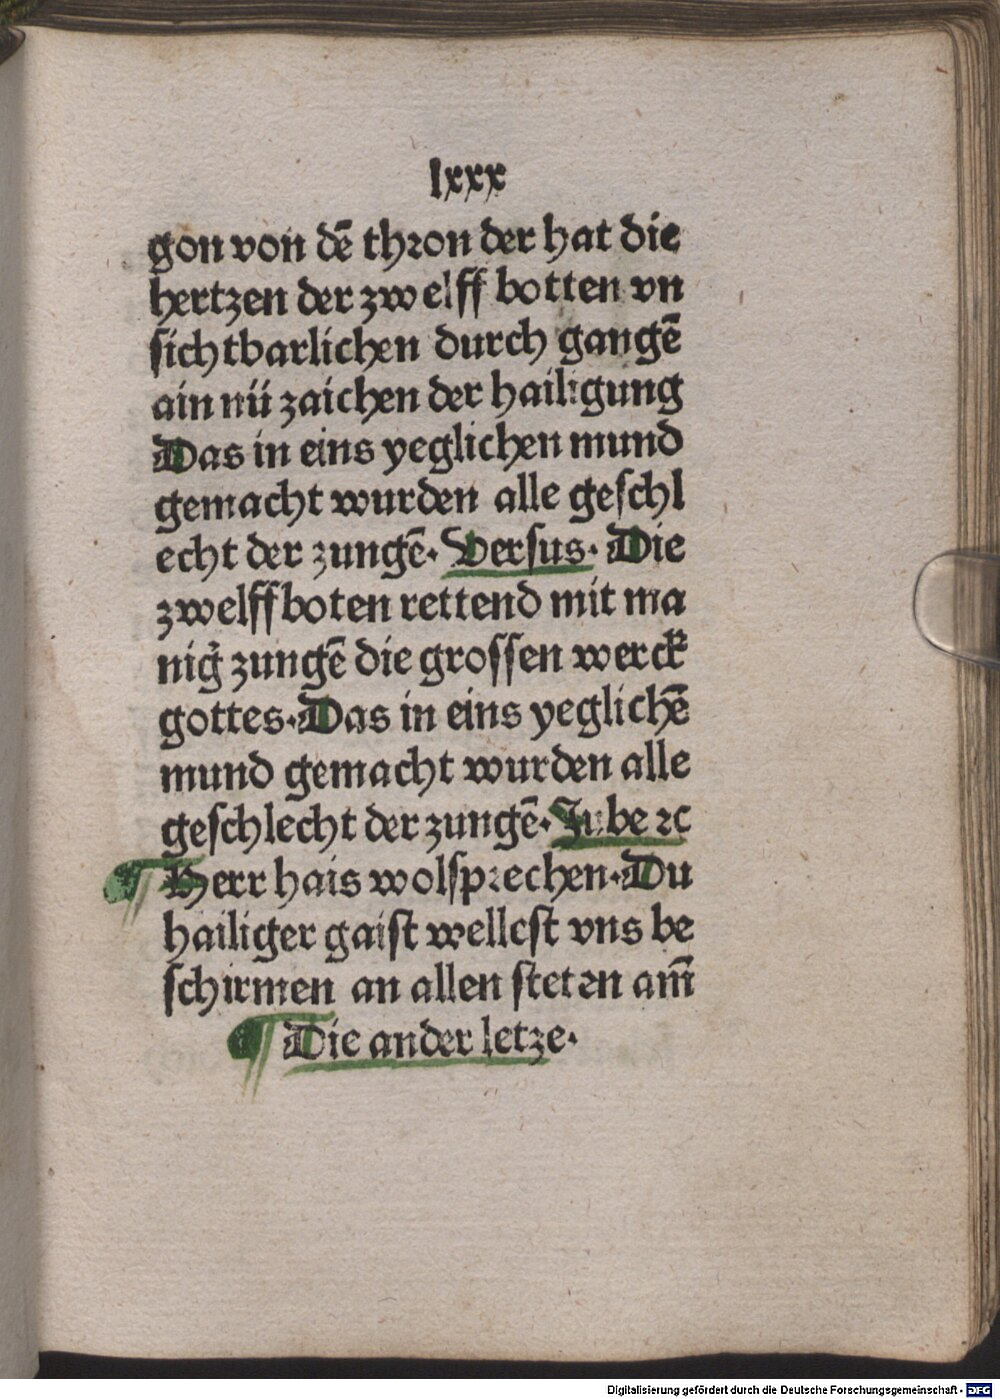 lxxx
gon von dē thron der hat die
hertzen der zwelff botten vn
sichtbarlichen durch gangē
ain nü zaichen der hailigung
Das in eins yeglichen mund
gemacht wurden alle geschl
echt der zungē. Versus. Die
zwelffboten rettend mit ma
nig̃ zungē die grossen werck
gottes. Das in eins yeglichē
mund gemacht wurden alle
geschlecht der zungē. Jube ⁊c
¶ Herr hais wolsprechen. Du
hailiger gaist wellest vns be
schirmen an allen steten am̄
¶ Die ander letze.
Digitalisierung gefördert durch die Deutsche Forschungsgemeinschaft - DFG